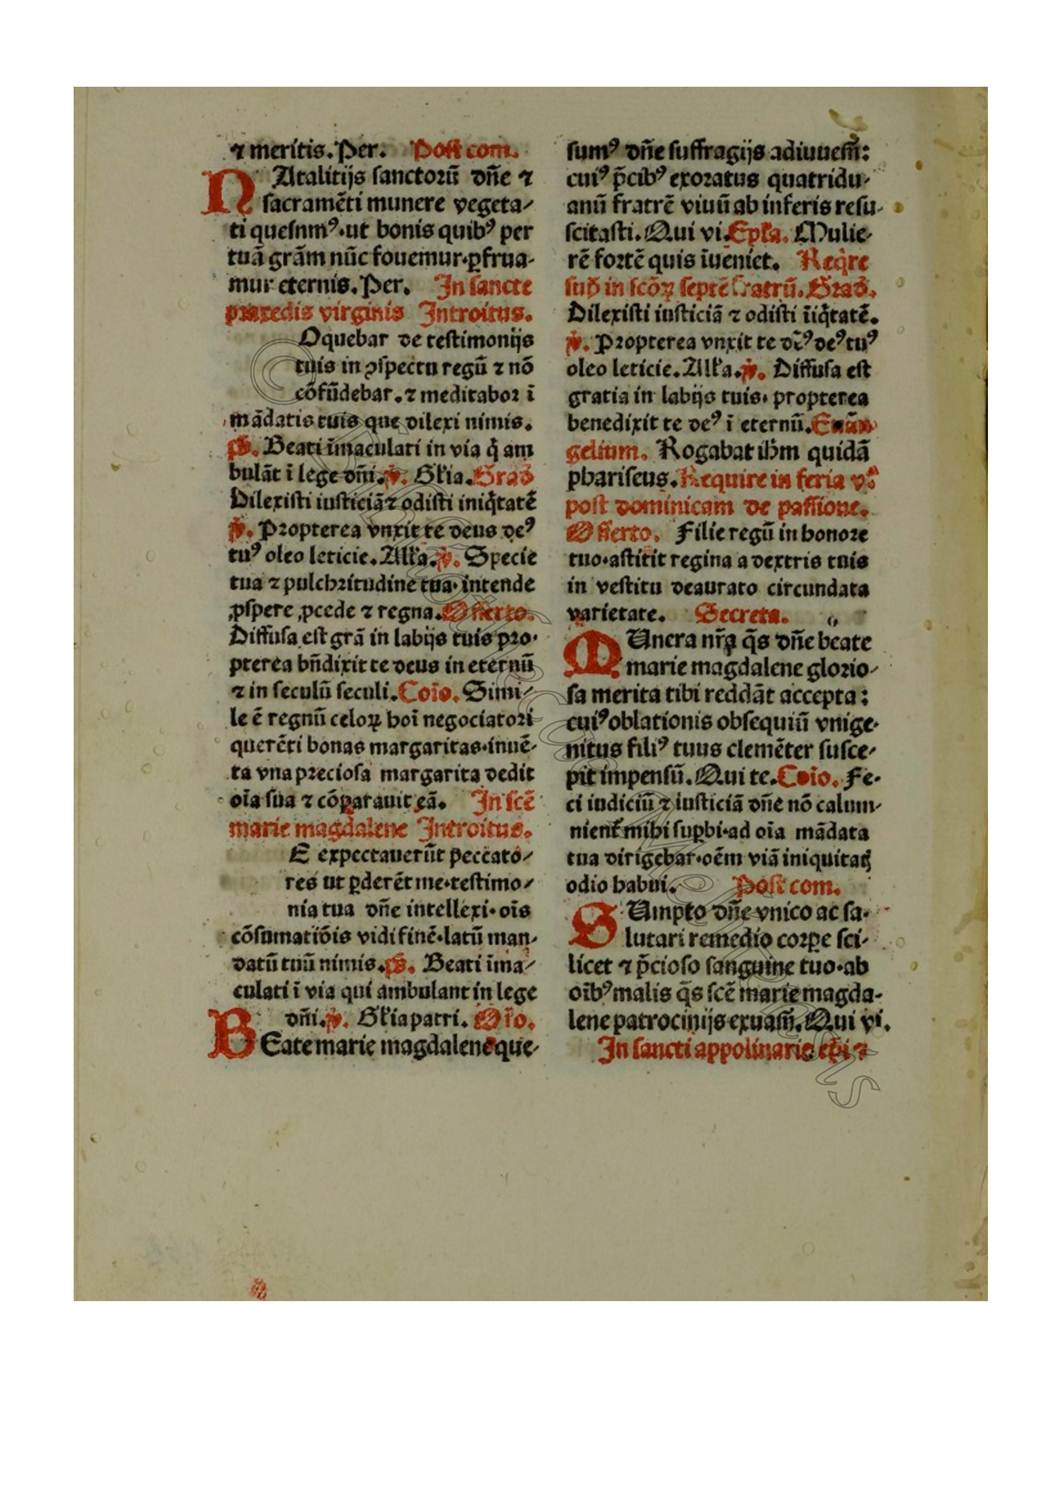 ⁊ meritis. Per. Post com.
NAtalitijs sanctorū dn̄e ⁊
sacramēti munere vegeta⸗
ti quesumꝰ·ut bonis quibꝰ per
tuā grām nūc fouemur·ꝑfrua⸗
mur eternis. Per. In sancte
praxedis virginis Introitus.
Oquebar de testimonijs
tuis in ꝯspectu regū ⁊ nō
cōfūdebar.⁊ meditabor ī
mādatis tuis que dilexi nimis.
ps. Beati īmaculati in via q̄ am
bulāt ī lege dn̄i. v̄. Gl'ia. Grad̄
Dilexisti iusticiā ⁊ odisti iniq̇tatē
v̄. Propterea vnxit te deus deꝰ
tuꝰ oleo leticie. All'a. v̄. Specie
tua ⁊ pulchritudine tua· intende
ꝓspere ꝓcede ⁊ regna. Offerto.
Diffusa est grā in labijs tuis pro⸗
pterea bn̄dixit te deus in eternū
⁊ in seculū seculi. Coīo. Simi⸗
le ē regnū celoꝝ hoī negociatori
querēti bonas margaritas·inuē⸗
ta vna preciosa margarita dedit
oīa sua ⁊ cōparauit eā. In scē
marie magdalene Introitus.
E expectauerūt peccato⸗
res ut ꝑderēt me·testimo⸗
nia tua dn̄e intellexi·oīs
cōsumatiōis vidi finē·latū man⸗
datū tuū nimis. ps. Beati īma⸗
culati ī via qui ambulant in lege
dn̄i. v̄. Gl'ia patri. Oīo.
BEate marie magdalene que⸗
sumꝰ dn̄e suffragijs adiuuem̄:
cuiꝰ p̄cibꝰ exoratus quatridu⸗
anū fratrē viuū ab inferis resu⸗
scitasti. Qui vi. Ep̄la. Mulie⸗
rē fortē quis īueniet. Req̇re
sup̄ in scōꝝ septē fratrū. Grad̄.
Dilexisti iusticiā ⁊ odisti īiq̇tatē.
v̄. Propterea vnxit te dn̄s deꝰ tuꝰ
oleo leticie. All'a. v̄. Diffusa est
gratia in labijs tuis· propterea
benedixit te deꝰ ī eternū. Euan⸗
gelium. Rogabat ihm quidā
phariseus. Require in feria vͣ
post dominicam de passione.
Offerto. Filie regū in honore
tuo·astitit regina a dextris tuis
in vestitu deaurato circundata
varietate. Secreta.
MUnera nr̄a q̄s dn̄e beate
marie magdalene glorio⸗
sa merita tibi reddāt accepta:
cuiꝰ oblationis obsequiū vnige⸗
nitus filiꝰ tuus clemēter susce⸗
pit impensū. Qui te. Coīo. Fe⸗
ci iudiciū ⁊ iusticiā dn̄e nō calum⸗
nient̄ mihi supbi·ad oīa mādata
tua dirigebar·oēm viā iniquitatꝭ
odio habui. Post com.
SUmpto dn̄e vnico ac sa⸗
lutari remedio corꝑe sci⸗
licet ⁊ p̄cioso sanguine tuo·ab
oībꝰ malis q̄s scē marie magda⸗
lene patrocinijs exuam̄. Qui vi.
In sancti appolinaris ep̄i ⁊